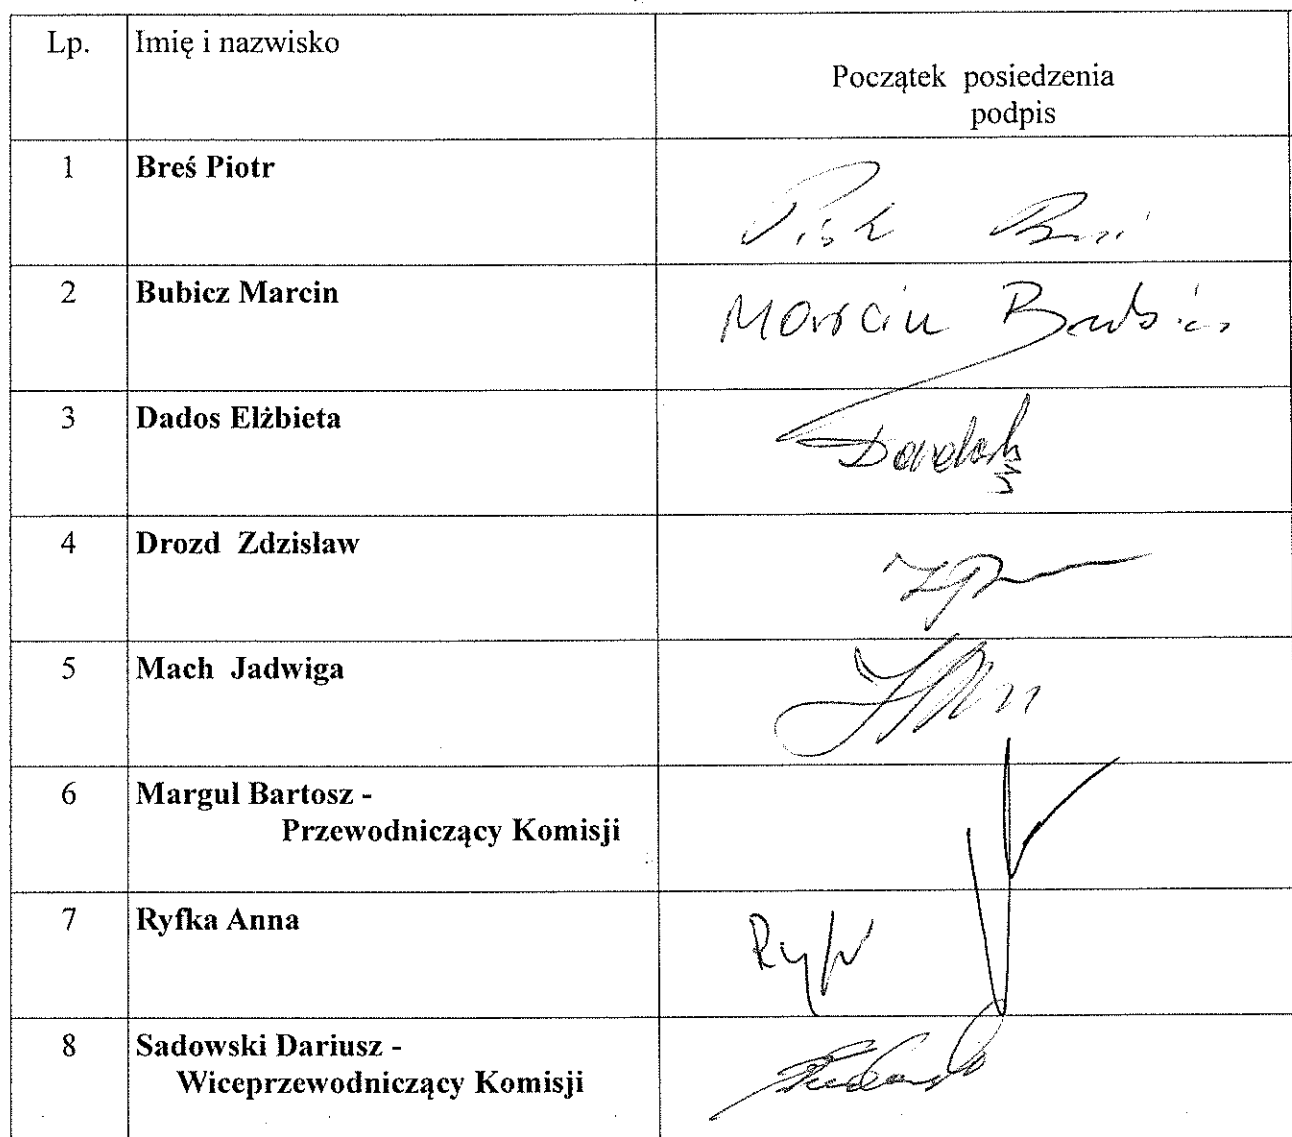 Lp. Imię i nazwisko
Początek posiedzenia
podpis
1 Breś Piotr
2 Bubicz Marcin
Marcin
3 Dados Elżbieta
4 Drozd Zdzisław
5 Mach Jadwiga
6 Margul Bartosz -
Przewodniczący Komisji
7 Ryfka Anna
8 Sadowski Dariusz -
Wiceprzewodniczący Komisji